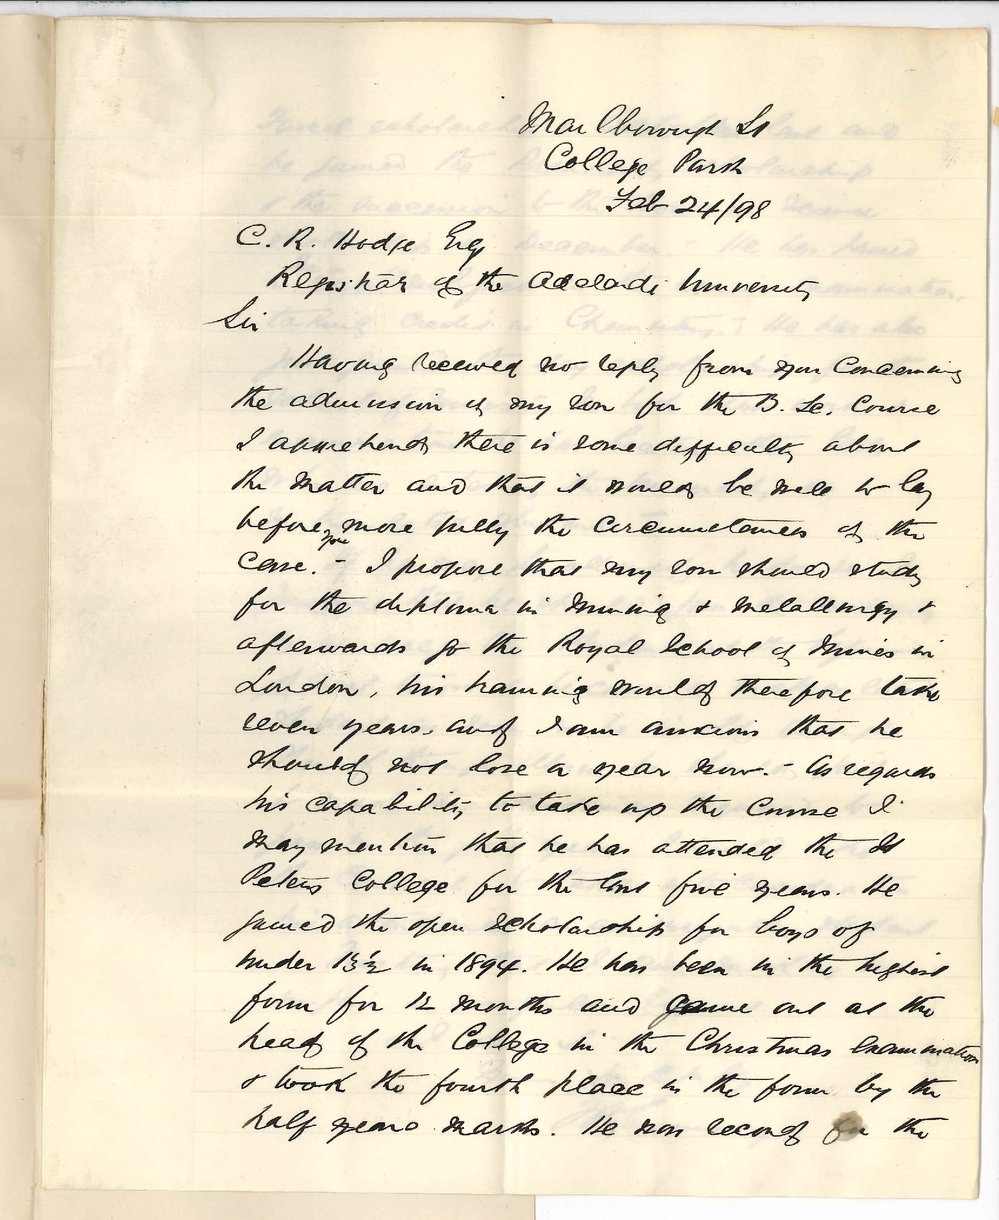 Marlborough St
College Park
Feb 24/98
C. R. Hodge Esq
Registrar of the Adelaide University
Sir
Having received no reply from you concerning
the admission of my son for the B. Sc. Course
I apprehend there is some difficulty about
the matter and that it would be well to lay
before you more fully the circumstances of the
case. - I propose that my son should study
for the diploma in Mining & Metallurgy &
afterwards go the Royal School of Mines in
London, his training would therefore take
seven years and I am anxious that he
should not lose a year now. - As regards
his capability to take up the Course I
may mention that he has attended the St
Peters College for the last five years. He
gained the open scholarship for boys of
under 13½ in 1894. He has been in the highest
form for 12 months and came out at the
head of the College in the Christmas examination
& took the fourth place in the form by the
half years marks. He was second for the